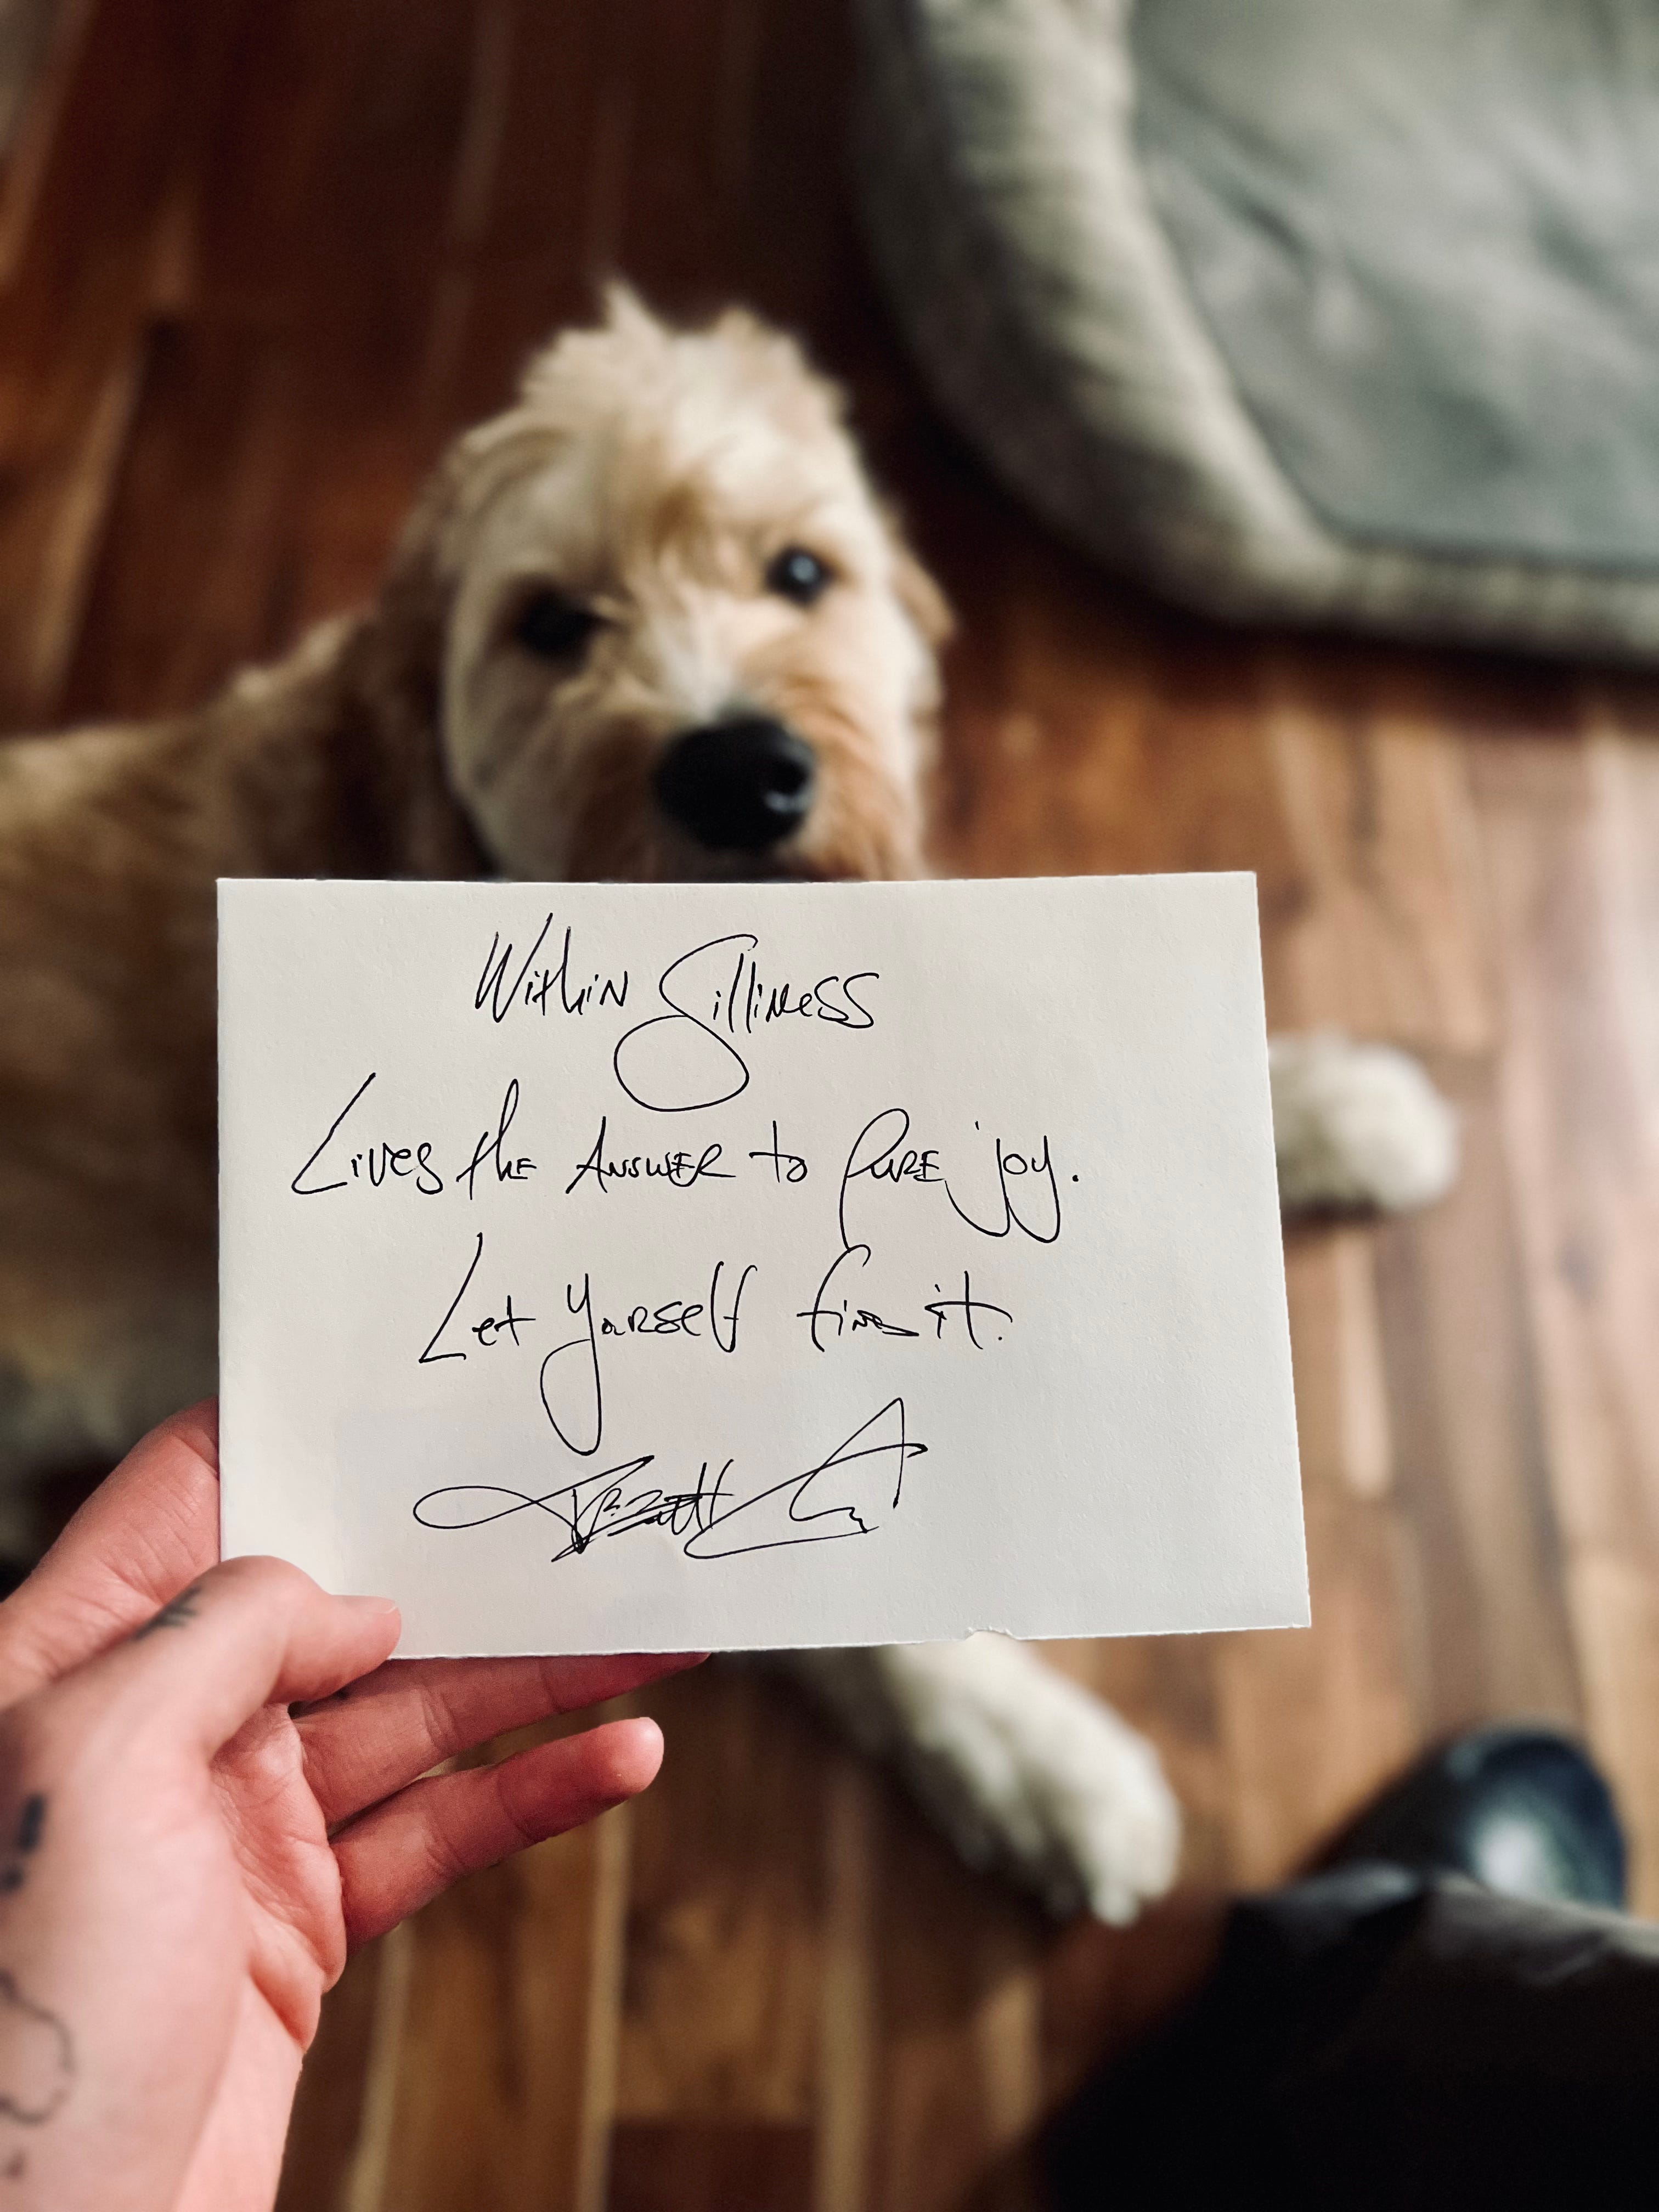 Within Silliness
Lives the Answer to Pure joy.
Let yourself find it.